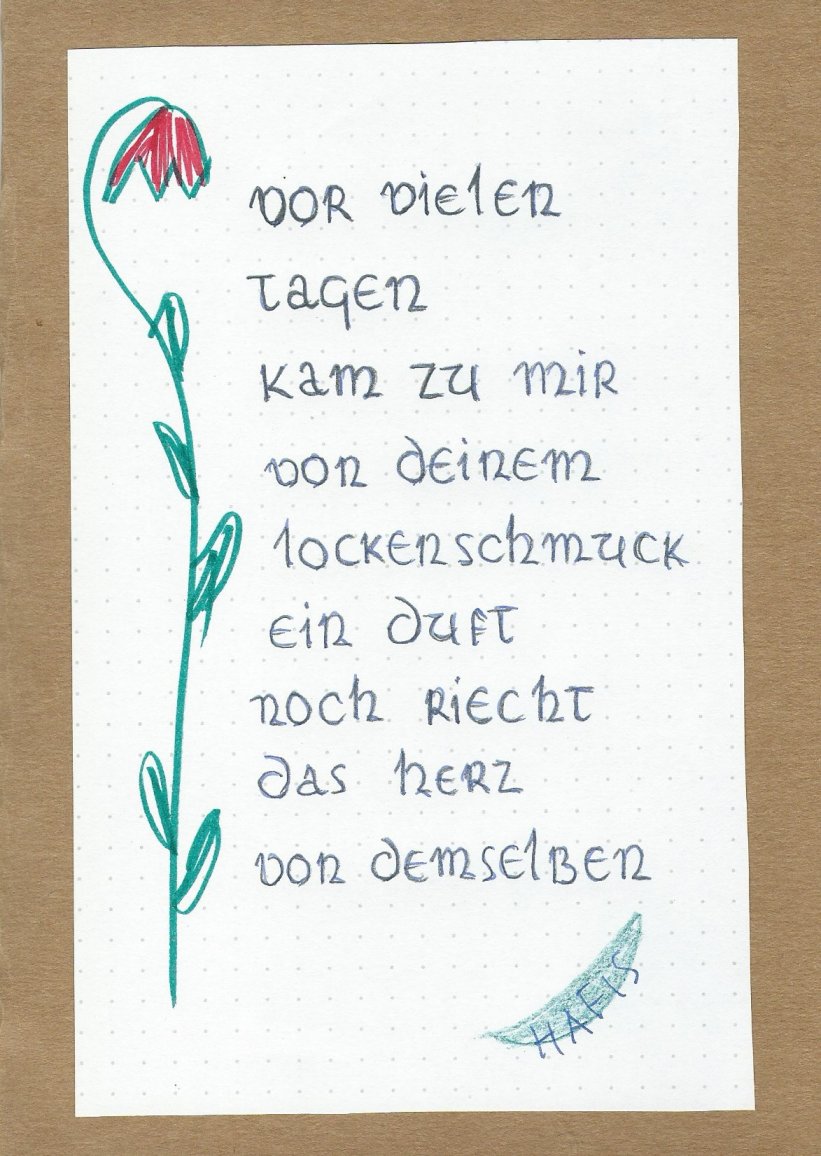 vor vielen
tagen
kam zu mir
von deinem
lockenschmuck
ein duft
noch riecht
das herz
von demselben
HAFIS